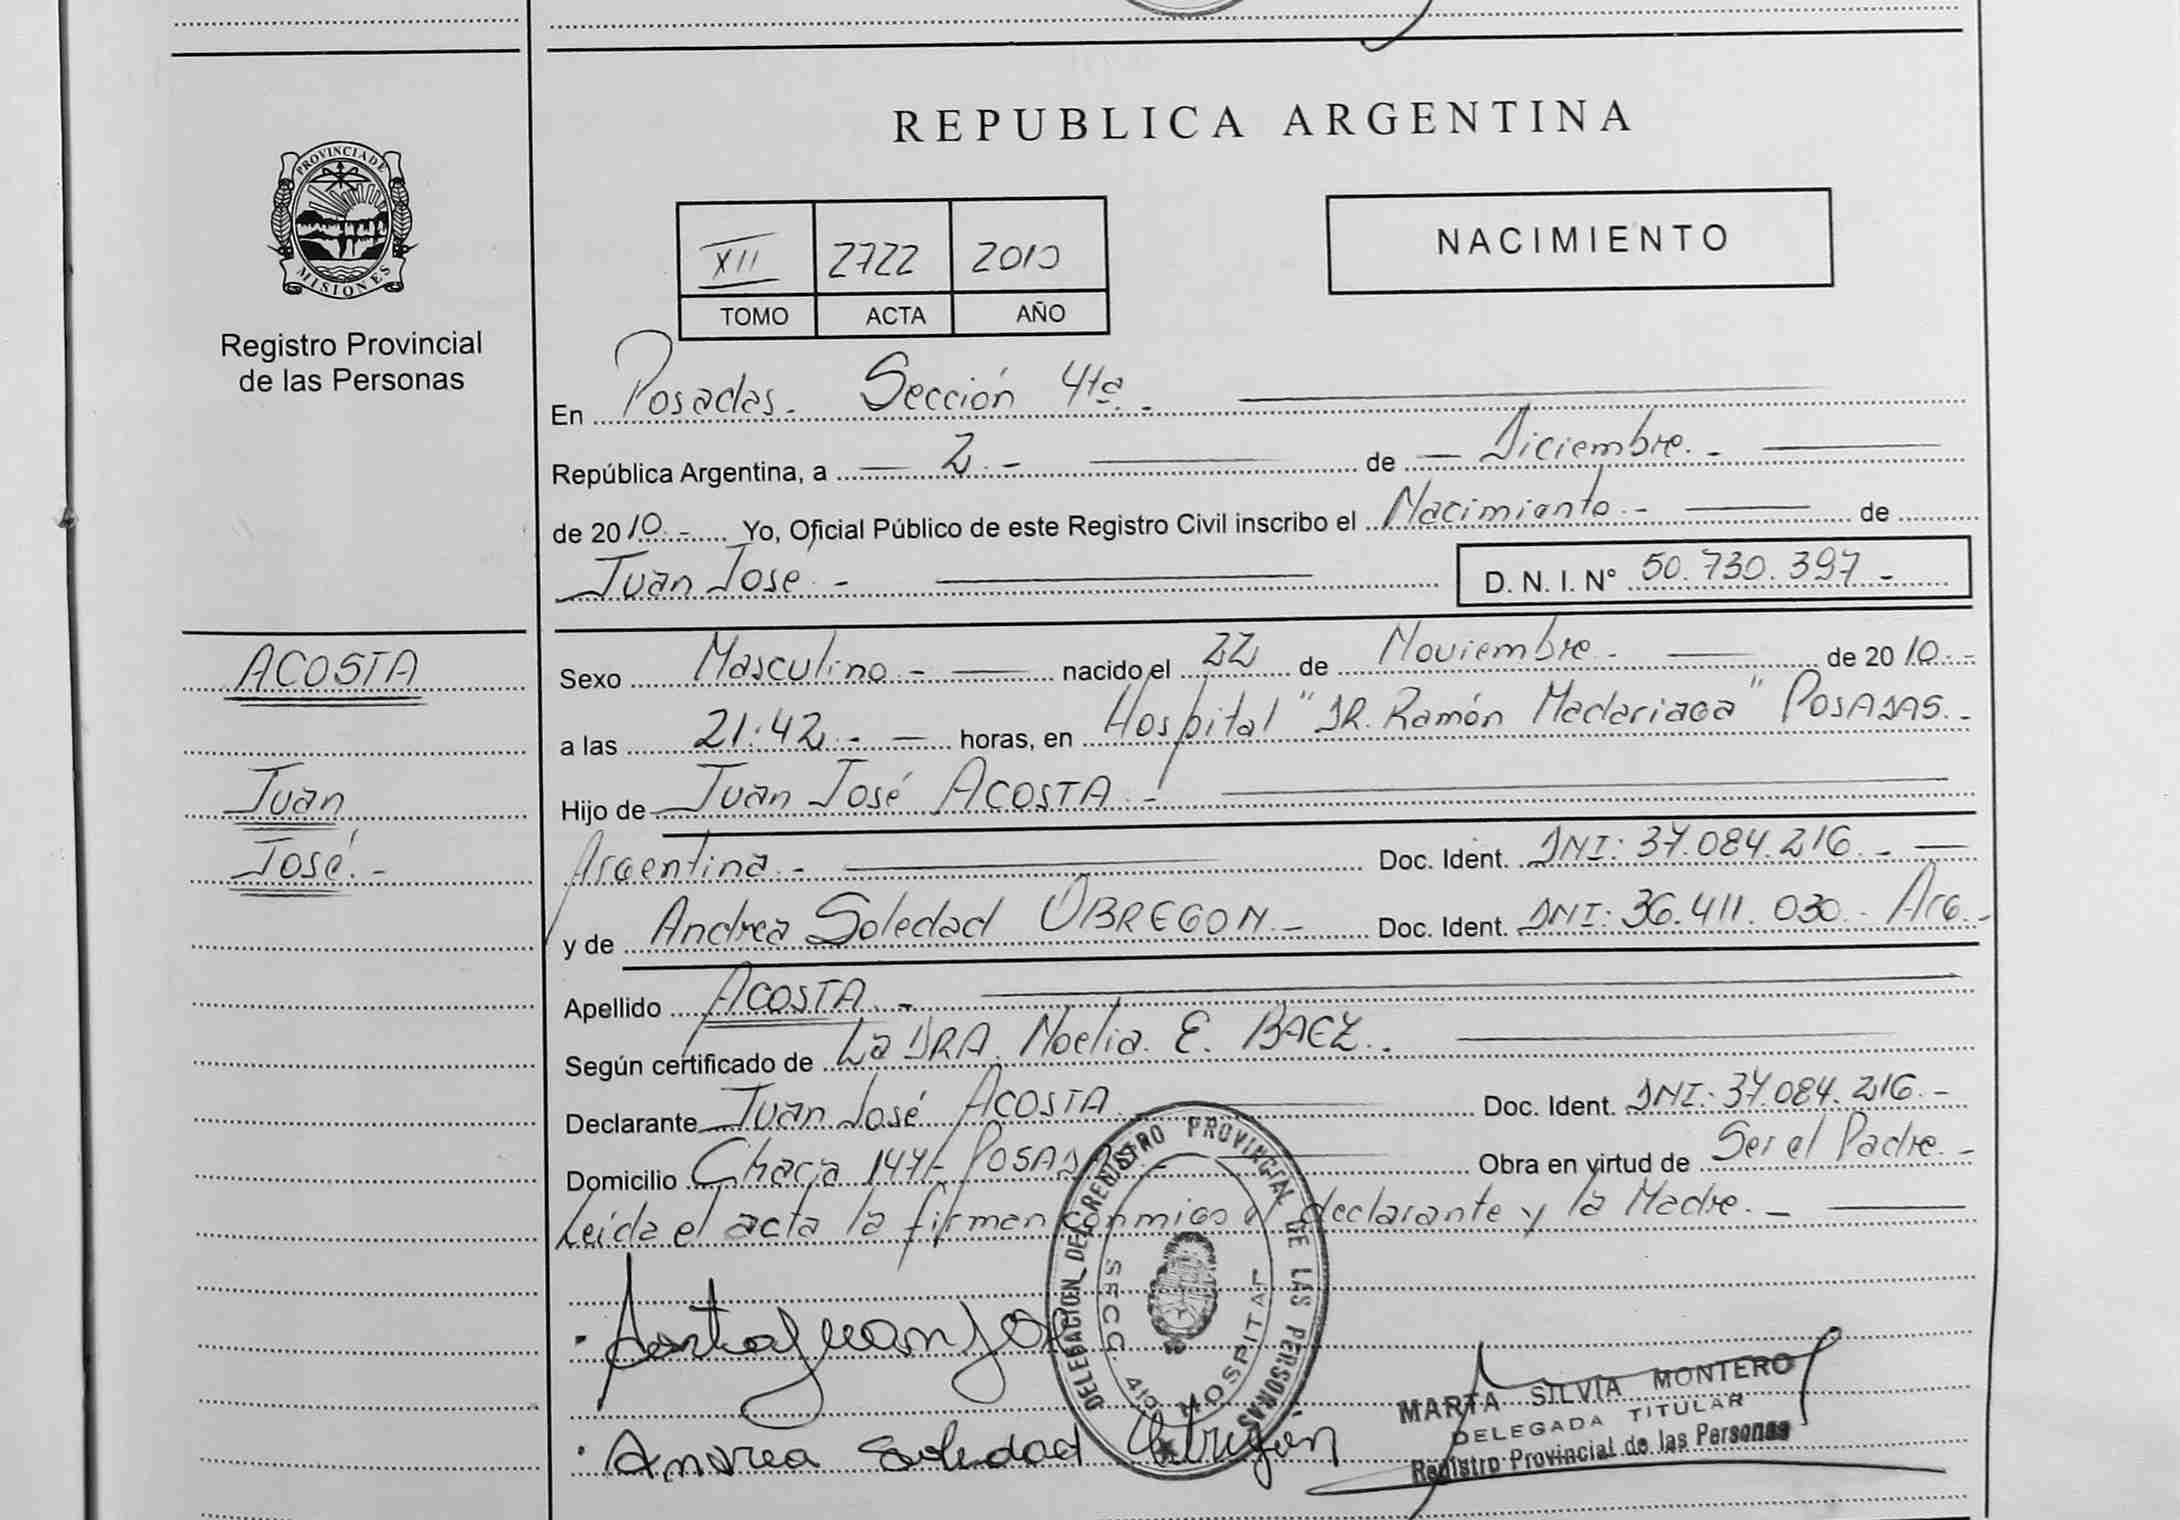 REPUBLICA ARGENTINA
PROVINCIA DE
MISIONES
Registro Provincial
de las Personas
XII 2722 2010
TOMO ACTA AÑO
NACIMIENTO
En Posadas. Sección 4ta.-
República Argentina, a 2.- de Diciembre.-
de 2010.- Yo, Oficial Público de este Registro Civil inscribo el Nacimiento.- de
Juan Jose.- D. N. I. N° 50.730.397-
ACOSTA
Juan
José.-
Sexo Masculino.- nacido el 22 de Noviembre.- de 2010.-
a las 21:42.- horas, en Hospital "DR. Ramón Madariaga" POSADAS.-
Hijo de Juan José ACOSTA.-
Argentina.- Doc. Ident. DNI: 37.084.216.-
y de Andrea Soledad OBREGON.- Doc. Ident. DNI: 36.411.030.- Arg.-
Apellido ACOSTA.-
Según certificado de La DRA. Noelia. E. BAEZ.
Declarante Juan José ACOSTA Doc. Ident. DNI: 37.084.216.-
Domicilio POSADAS.- Obra en virtud de Ser el Padre.-
Leida el acta la firman conmigo el declarante y la Madre.-
DELEGACION DEL REGISTRO PROVINCIAL DE LAS PERSONAS
SECC. 4ta HOSPITAL
Andrea Soledad Obregón
MARTA SILVIA MONTERO
DELEGADA TITULAR
Registro Provincial de las Personas